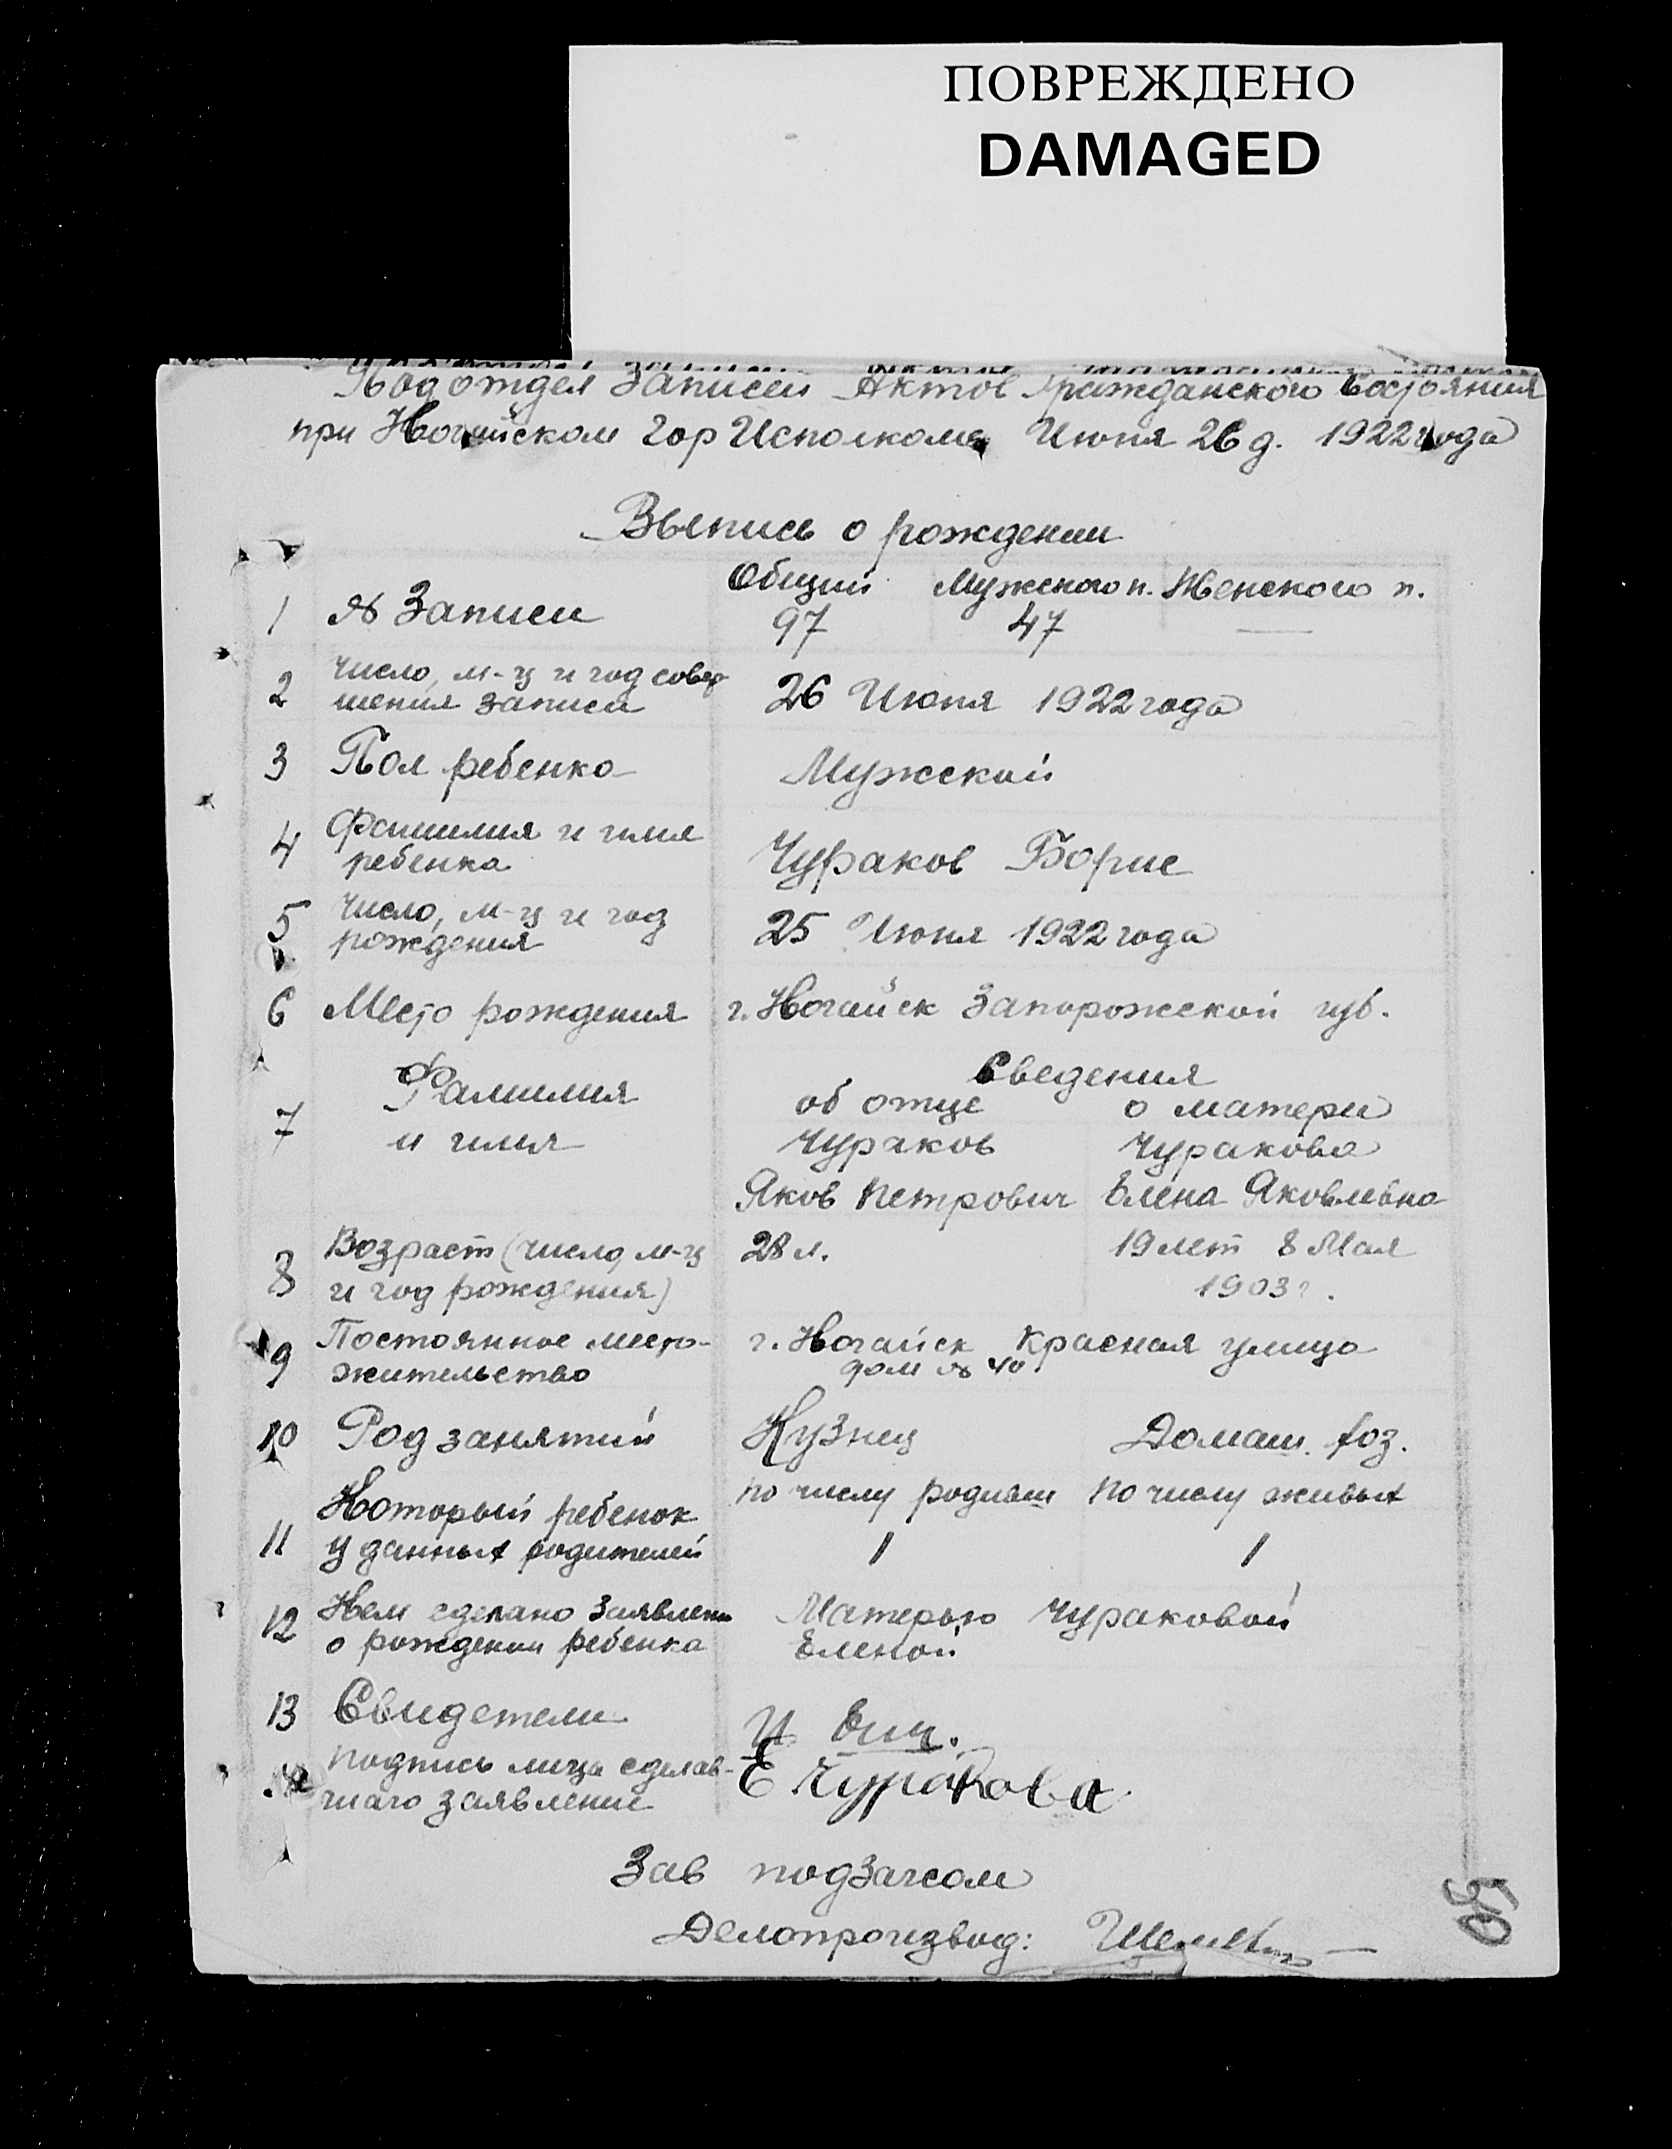 ПОВРЕЖДЕНО
DAMAGED
Подотдел Записей Актов Гражданского Состояния
при Ногайском ГорИсполкоме Июня 26 д. 1922 года
Выпись о рождении
Общий Мужского п. Женского п.
1 № Записи 97 47 —
2 Число, м-ц и год совер-
шения записи 26 Июня 1922 года
3 Пол ребенка Мужской
4 Фамилия и имя
ребенка Чураков Борис
5 Число, м-ц и год
рождения 25 Июня 1922 года
6 Место рождения г. Ногайск Запорожской губ.
Сведения
7 Фамилия об отце о матери
и имя Чураков Чуракова
Яков Петрович Елена Яковлевна
8 Возраст (число, м-ц 28 л. 19 лет 8 Мая
и год рождения) 1903 г.
9 Постоянное место- г. Ногайск Красная улица
жительство дом № 40.
10 Род занятий Кузнец Домаш. хоз.
по числу родивш по числу живых
11 Который ребенок
у данных родителей 1 1
12 Кем сделано заявлени Матерью Чураковой
о рождении ребенка Еленой
13 Свидетели
Подпись лица сделав-
шаго заявление Е Чуракова
Зав подзагсом
Делопроизвод:
50